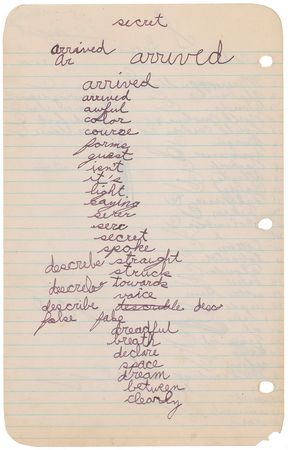 secret
arrived
Ar arrived
arrived
arrived
awful
color
course
forms
guest
isn't
it's
light
saying
serc
secret
spoke
describe straight
struck
describe towards
voice
describe describle des
false false
dreadful
breath
declare
space
dream
between
clearly